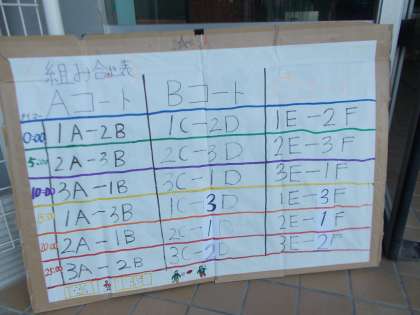 組み合せ表
Aコート Bコート
0:00 1A-2B 1C-2D 1E-2F
5:00 2A-3B 2C-3D 2E-3F
10:00 3A-1B 3C-1D 3E-1F
15:00 1A-3B 1C-3D 1E-3F
20:00 2A-1B 2C-1D 2E-1F
25:00 3A-2B 3C-2D 3E-2F